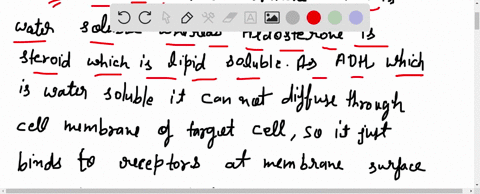 is
water soluble whereas Aldosterone is
steroid which is lipid soluble. As ADH which
is water soluble it can not diffuse through
cell membrane of target cell, so it just
binds to receptors at membrane surface